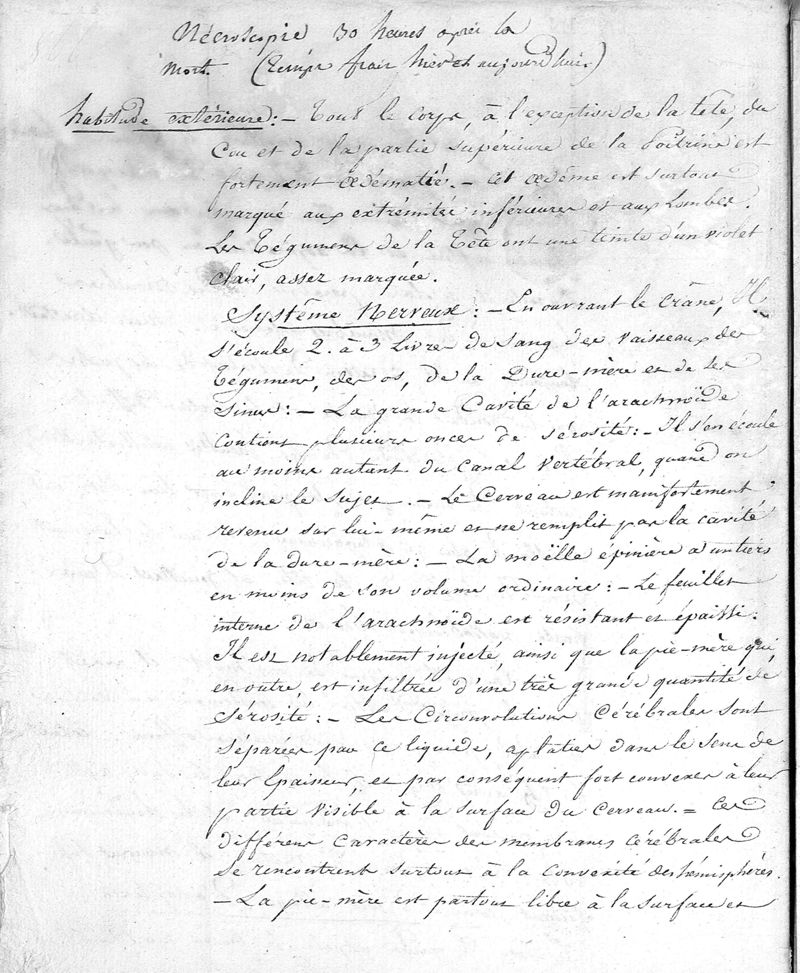 Nécroscopie 30 heures après la
mort. (Temps frais hier et aujourd'hui.)
habitude extérieure : – Tout le corps, à l'exception de la tête, du
Cou et de la partie supérieure de la Poitrine est
fortement œdématié. – Cet œdème est surtout
marqué aux extrémités inférieures et aux Lombes.
Les Tégumens de la Tête ont une teinte d'un violet
clair, assez marquée.
Système Nerveux : – En ouvrant le crâne, Il
s'écoule 2. à 3 Livres de Sang des vaisseaux des
Tégumens, des os, de la Dure-mère et de ses
Sinus : – La grande Cavité de l'arachnoïde
contient plusieurs onces de sérosité : – Il s'en écoule
au moins autant du Canal vertébral, quand on
incline le sujet. – Le Cerveau est manifestement
revenu sur lui-même et ne remplit pas la cavité
de la dure-mère : – La moëlle épinière a un tiers
en moins de son volume ordinaire : – Le feuillet
interne de l'arachnoïde est résistant et épaissi :
Il est notablement injecté, ainsi que la pie-mère qui,
en outre, est infiltrée d'une très grande quantité de
sérosité : – Les Circonvolutions Cérébrales sont
séparées par ce liquide, aplaties dans le sens de
leur Epaisseur, et par conséquent fort convexes à leur
partie visible à la surface du Cerveau. = Ces
différens caractères des membranes cérébrales
se rencontrent surtout à la convexité des hémisphères.
– La pie-mère est partout libre à la surface et